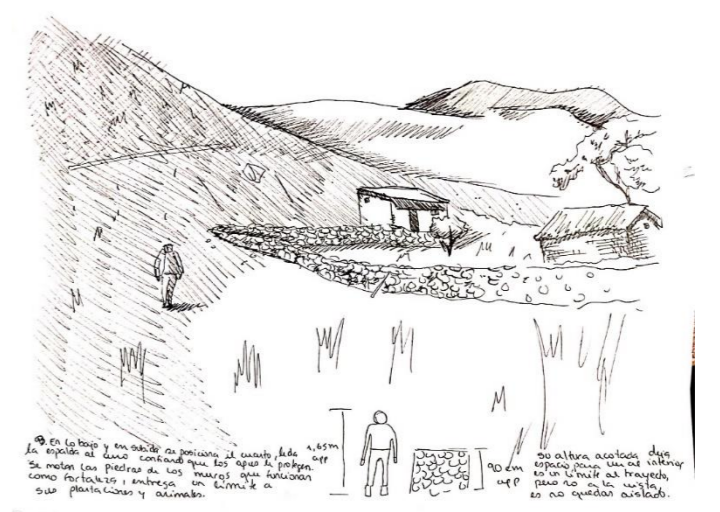 En lo bajo y en subida se posiciona el cuarto, le da
la espalda al uno confiando que los apus le protegen.
Se notan las piedras de los muros que funcionan
como fortaleza, entrega un límite a
sus plantaciones y animales.
1,65m
app
90 cm
app
su altura acotada deja
espacio para ver al interior
es un límite al trayecto,
pero no a la vista,
es no quedar aislado.